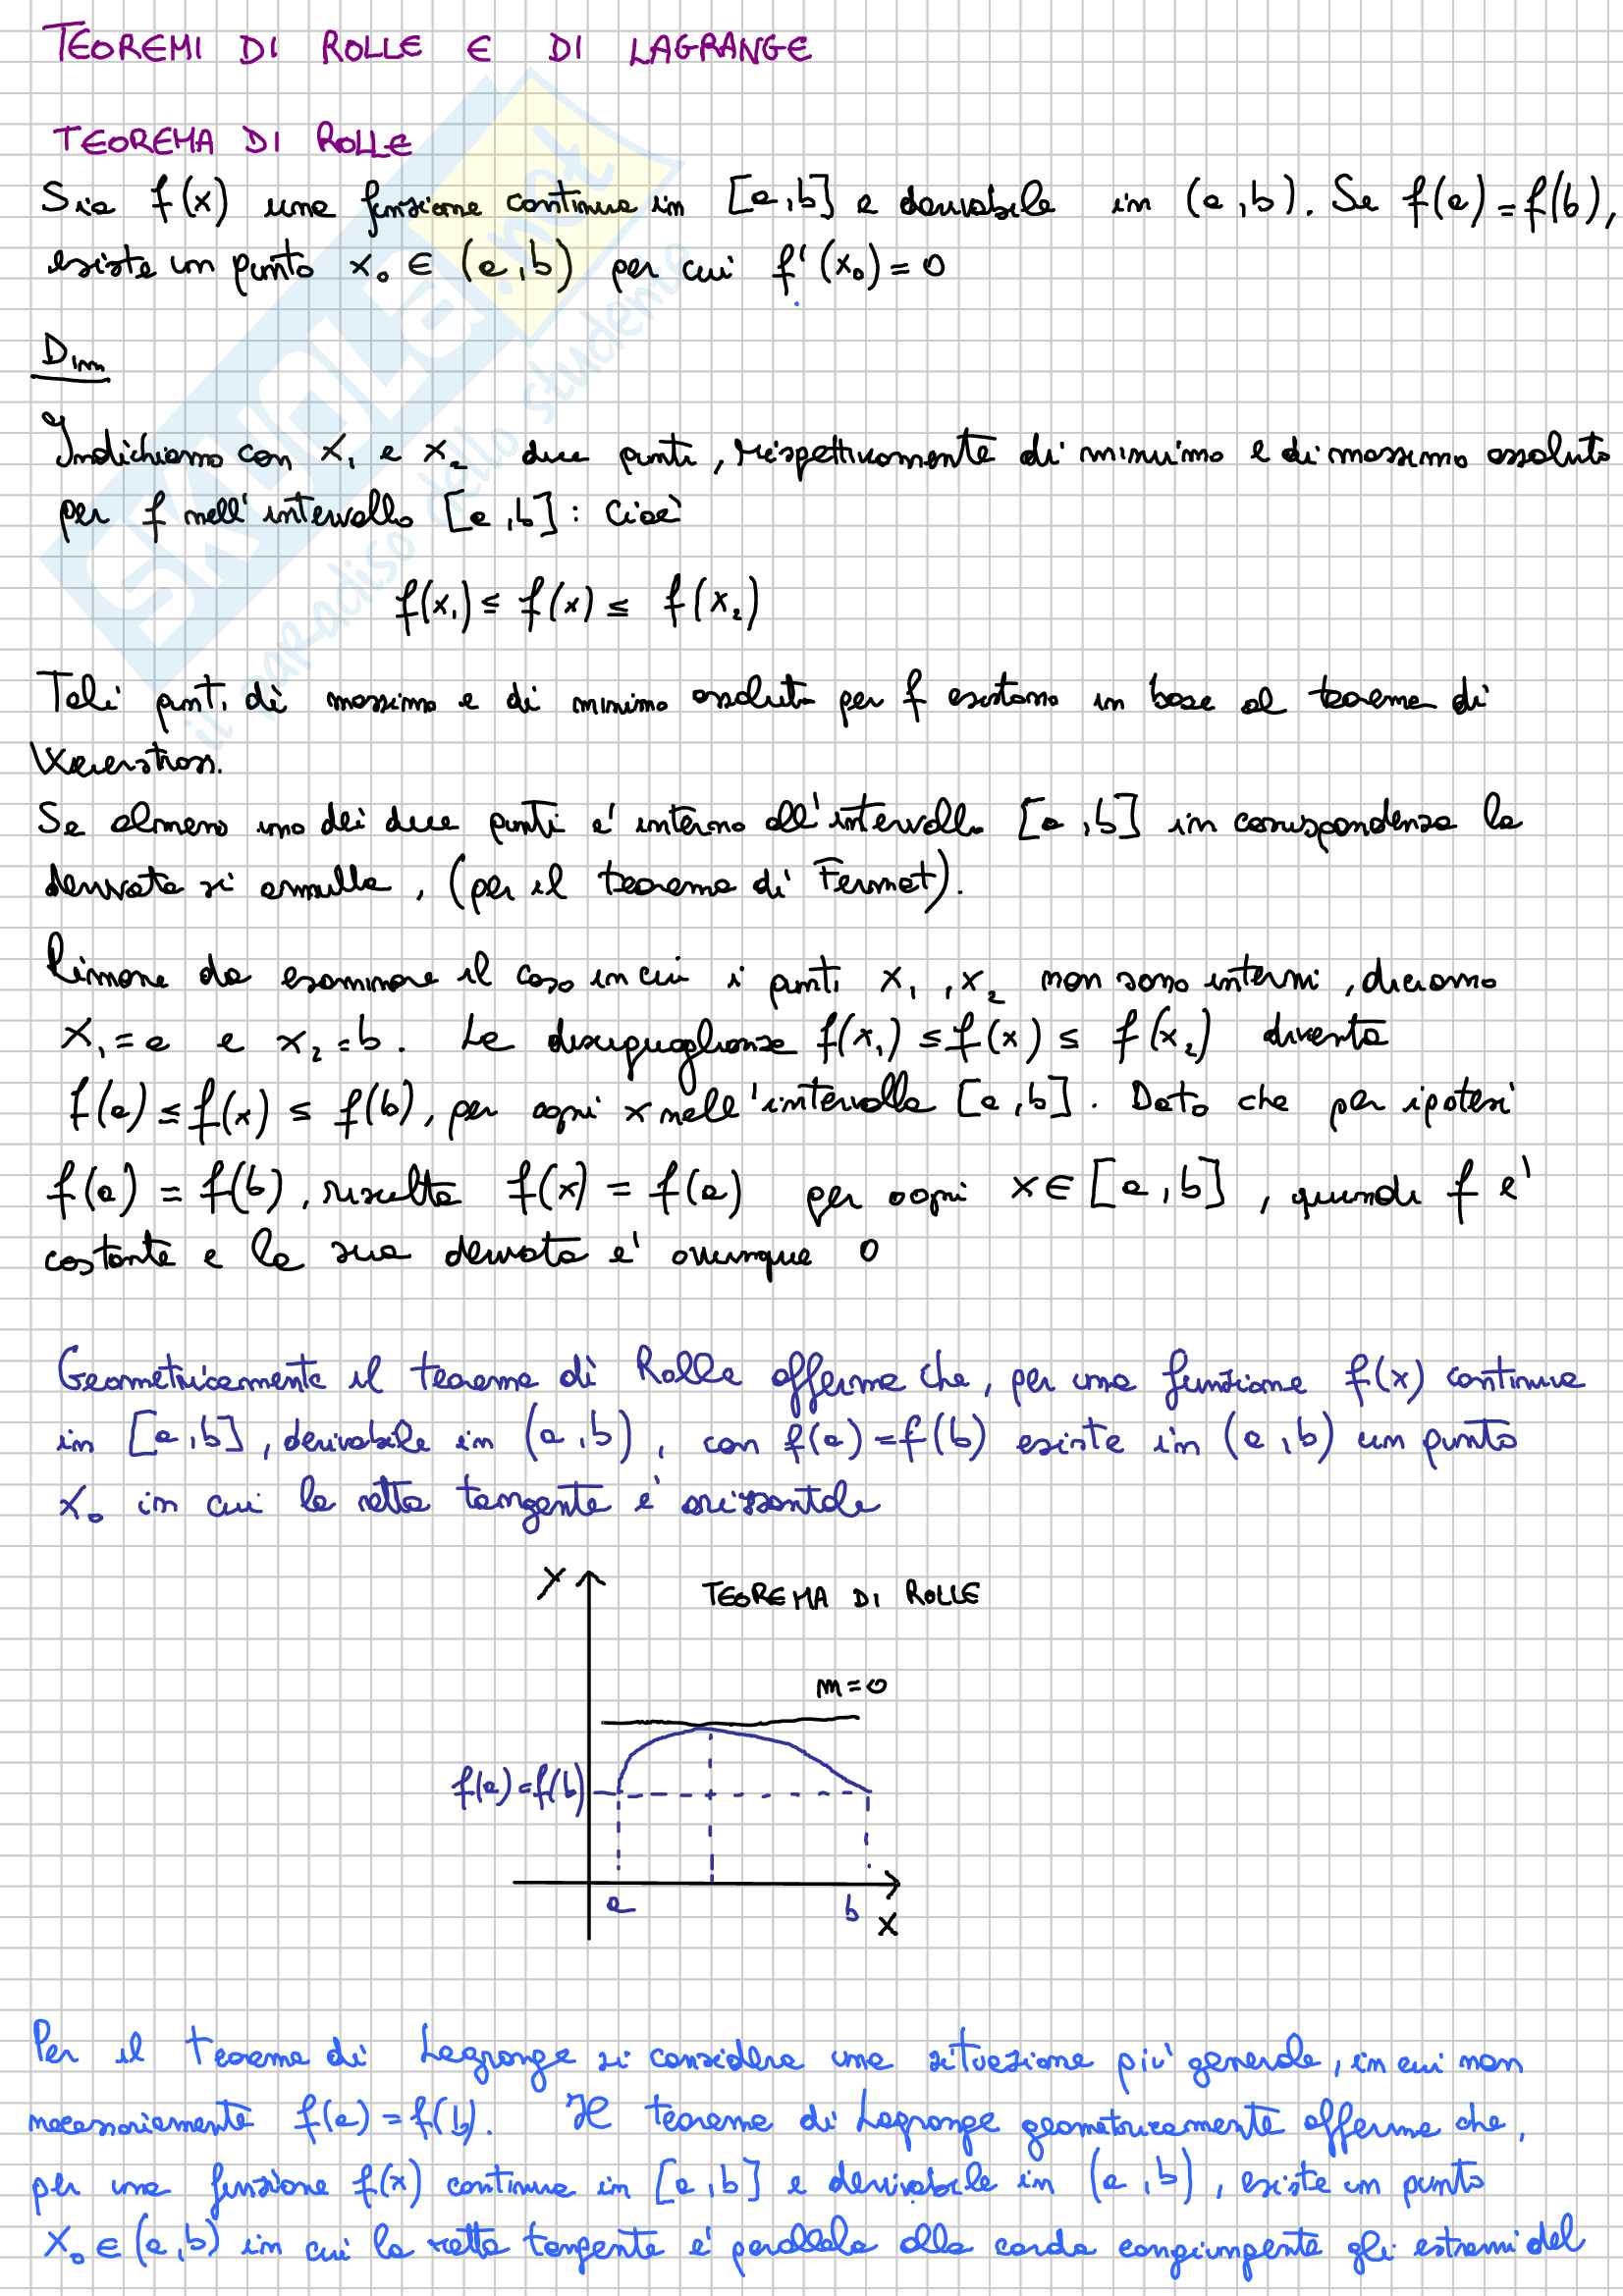 TEOREMI DI ROLLE E DI LAGRANGE
TEOREMA DI ROLLE
Sia f(x) una funzione continua in [a,b] e derivabile in (a,b). Se f(a)=f(b),
esiste un punto x₀ ∈ (a,b) per cui f'(x₀)=0
Dim
Indichiamo con x₁ e x₂ due punti, rispettivamente di minimo e di massimo assoluto
per f nell'intervallo [a,b]: Cioè
f(x₁) ≤ f(x) ≤ f(x₂)
Tali punti di massimo e di minimo assoluto per f esistono in base al teorema di
Weierstrass.
Se almeno uno dei due punti è interno all'intervallo [a,b] in corrispondenza la
derivata si annulla, (per il teorema di Fermat).
Rimane da esaminare il caso in cui i punti x₁, x₂ non sono interni, diciamo
x₁=a e x₂=b. Le disuguaglianze f(x₁) ≤ f(x) ≤ f(x₂) diventa
f(a) ≤ f(x) ≤ f(b), per ogni x nell'intervallo [a,b]. Dato che per ipotesi
f(a) = f(b), risulta f(x) = f(a) per ogni x ∈ [a,b], quindi f è
costante e la sua derivata è ovunque 0
Geometricamente il teorema di Rolle afferma che, per una funzione f(x) continua
in [a,b], derivabile in (a,b), con f(a)=f(b) esiste in (a,b) un punto
x₀ in cui la retta tangente è orizzontale
Y TEOREMA DI ROLLE
m=0
f(a)=f(b)
a b X
Per il teorema di Lagrange si considera una situazione più generale, in cui non
necessariamente f(a)=f(b). Il teorema di Lagrange geometricamente afferma che,
per una funzione f(x) continua in [a,b] e derivabile in (a,b), esiste un punto
x₀ ∈ (a,b) in cui la retta tangente è parallela alla corda congiungente gli estremi del
SKUOLA.net
il paradiso dello studente